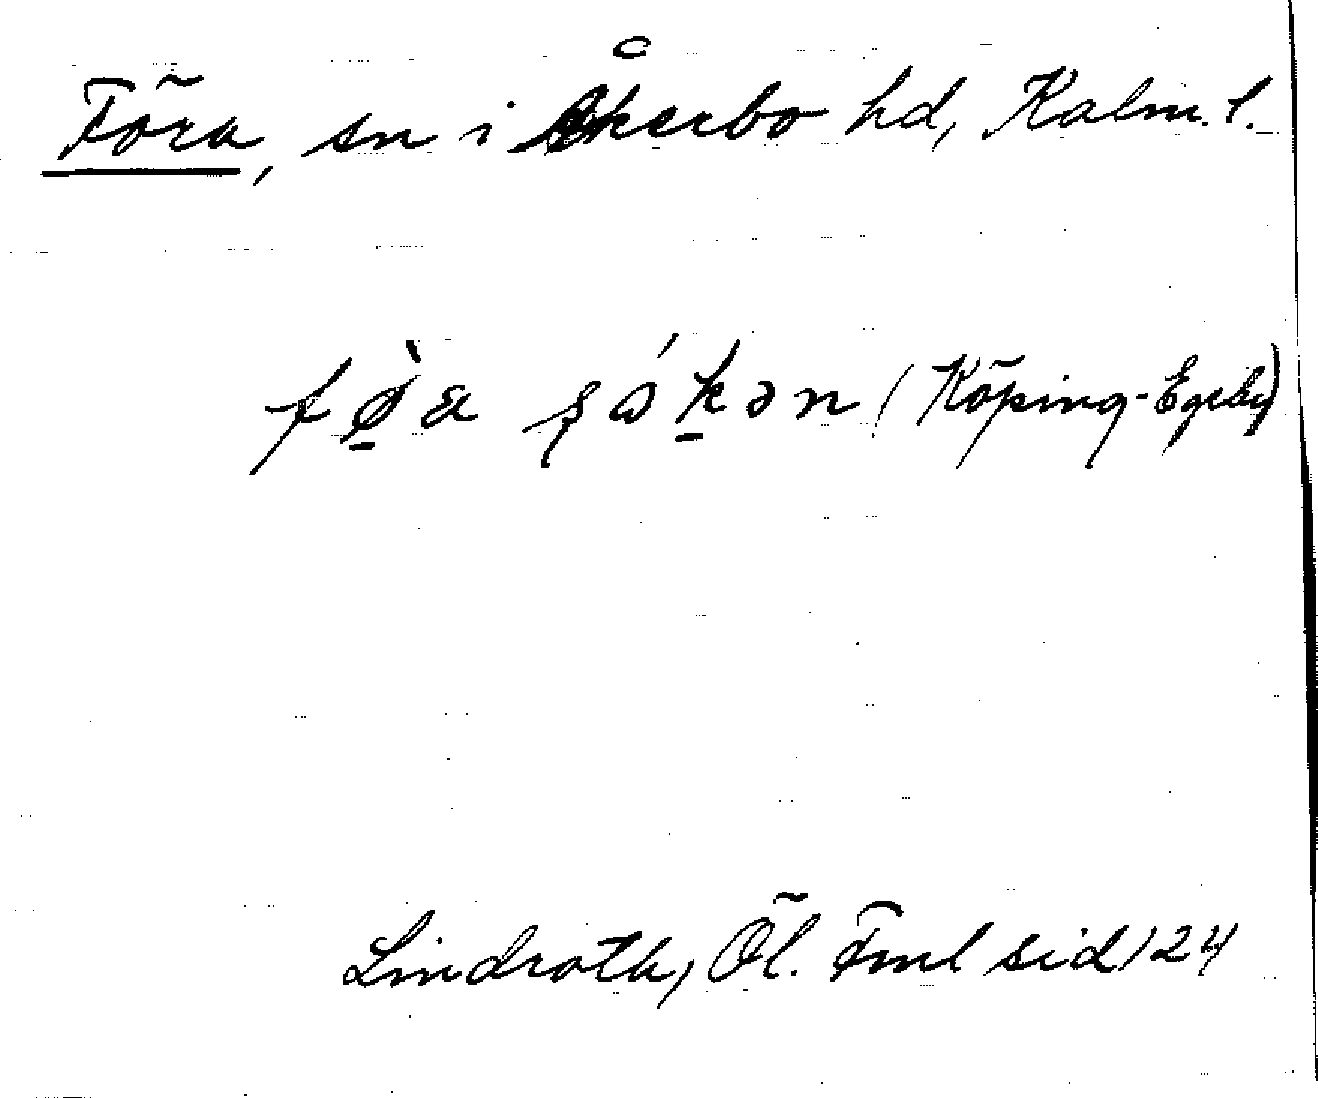 Föra, sn i Åkerbo hd, Kalm. l.
fø̱̀a ʂó̵ḵən (Köping-Egeby)
Lindroth, Öl. Fml sid 124